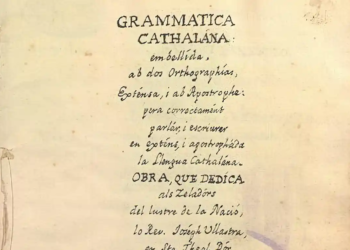 GRAMMATICA
CATHALÁNA:
embellida,
ab dos Orthographías,
Exténsa, i ab Apostrophe:
pera correctament
parlár, i escriurer
en exténs, i apostropháda
la Llengua Cathaléna.
OBRA, QUE DEDICA
als Zeladórs
del lustre de la Nació,
lo Rev. Joseph Ullastra,
en Sta. Theol. Dór.